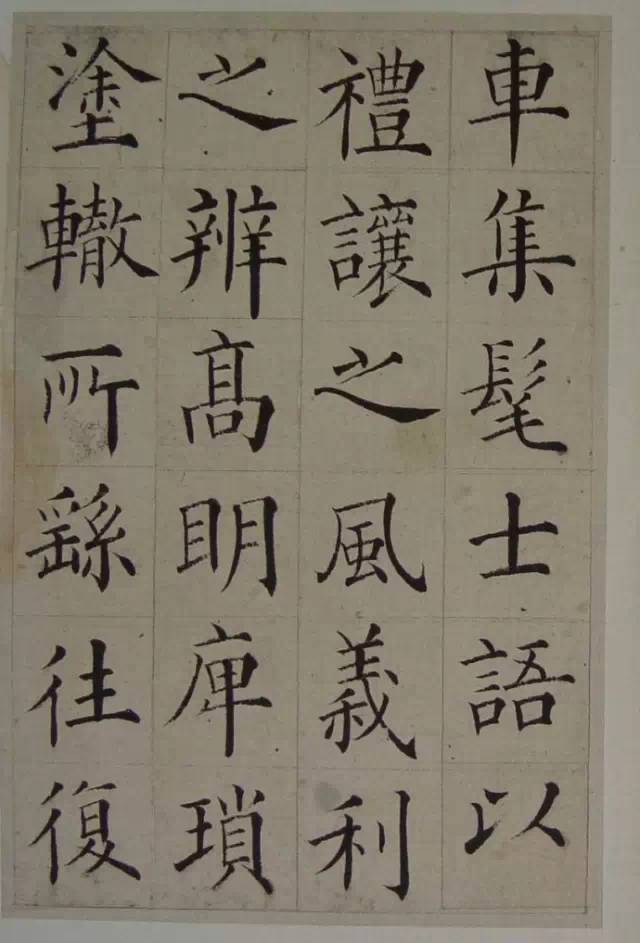 車集髦士語以
禮讓之風義利
之辨高明庳瑣
塗轍所繇往復